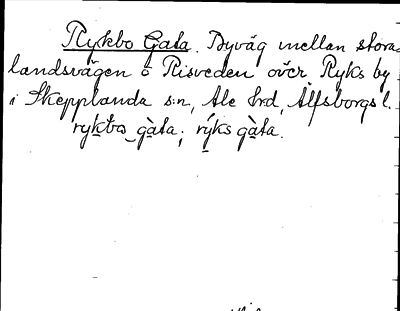 Rykbo Gata. Byväg mellan stora
landsvägen o Risveden över Ryks by
i Skepplanda s:n, Ale hrd, Älfsborgs l.
rykbo gàta; rýks gàta.